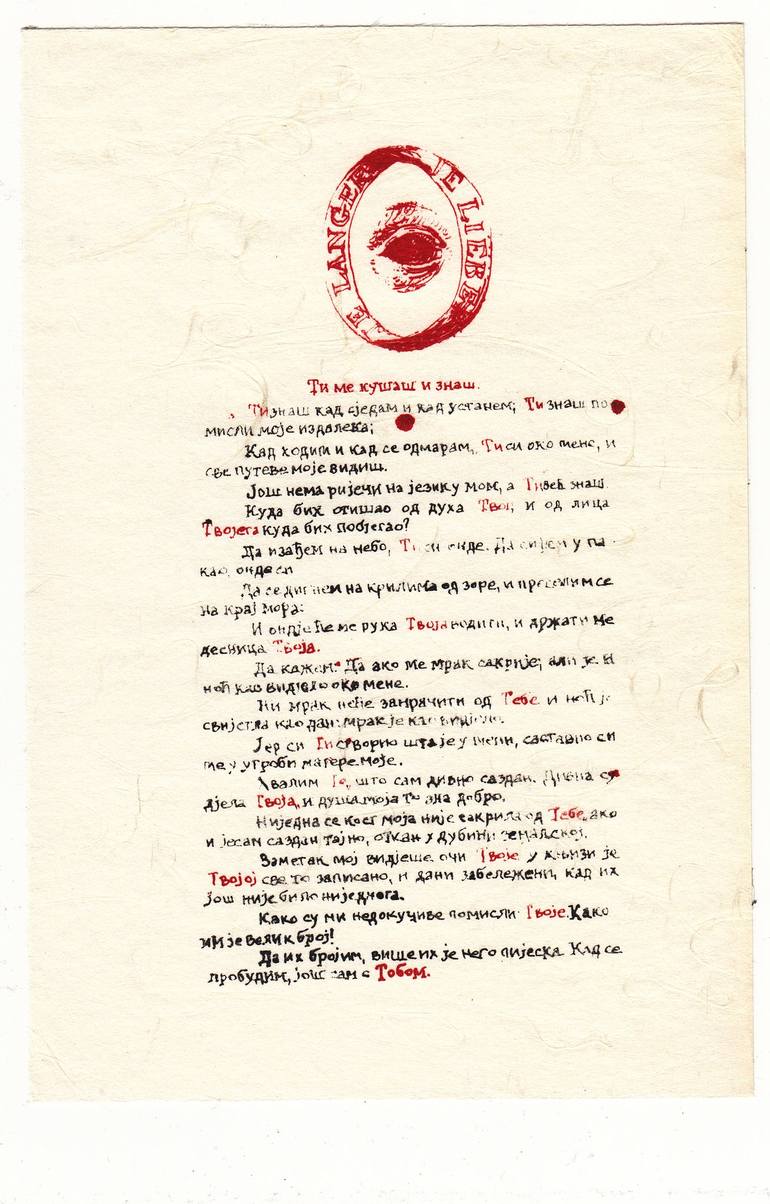 JE LANGER JE LIEBER
Ти ме кушаш и знаш.
Ти знаш кад сједам и кад устанем; Ти знаш по
мисли моје издалека;
Кад ходим и кад се одмарам, Ти си око мене, и
све путеве моје видиш.
Још нема ријечи на језику мом, а Ти већ знаш.
Куда бих отишао од духа Твог, и од лица
Твојега куда бих побјегао?
Да изађем на небо, Ти си онде. Да сиђем у па
као, онде си
Да се дигнем на крилима од зоре, и преселим се
на крај мора:
И ондје ће ме рука Твоја водити, и држати ме
десница Твоја.
Да кажем: Да ако ме мрак сакрије; али је и
ноћ као видјело око мене.
Ни мрак неће замрачити од Тебе и ноћ је
свијетла као дан: мрак је као видјело.
Јер си Ти створио шта је у мени, саставио си
ме у утроби матере моје.
Хвалим Те, што сам дивно саздан. Дивна су
дјела Твоја, и душа моја то зна добро.
Ниједна се кост моја није сакрила од Тебе, ако
и јесам саздан тајно, откан у дубини земаљској.
Заметак мој видјеше очи Твоје у књизи је
Твојој све то записано, и дани забележени, кад их
још није било ниједнога.
Како су ми недокучиве помисли Твоје. Како
им је велик број!
Да их бројим, више их је него пијеска. Кад се
пробудим, још сам с Тобом.